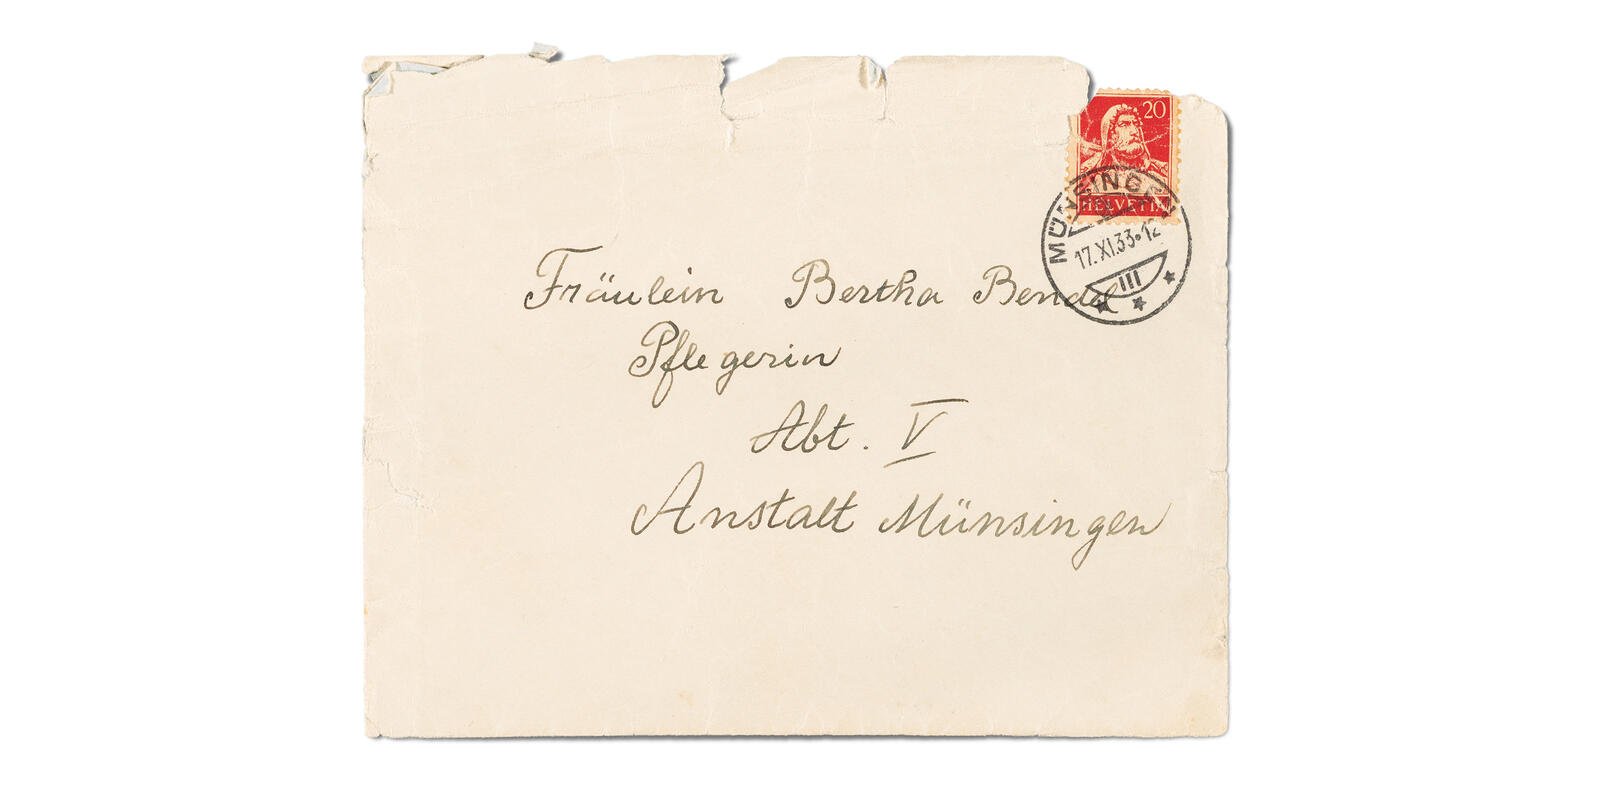 20
HELVETIA
MÜNSINGEN
17.XI.33-12
III
Fräulein Bertha Bendel
Pflegerin
Abt. V
Anstalt Münsingen